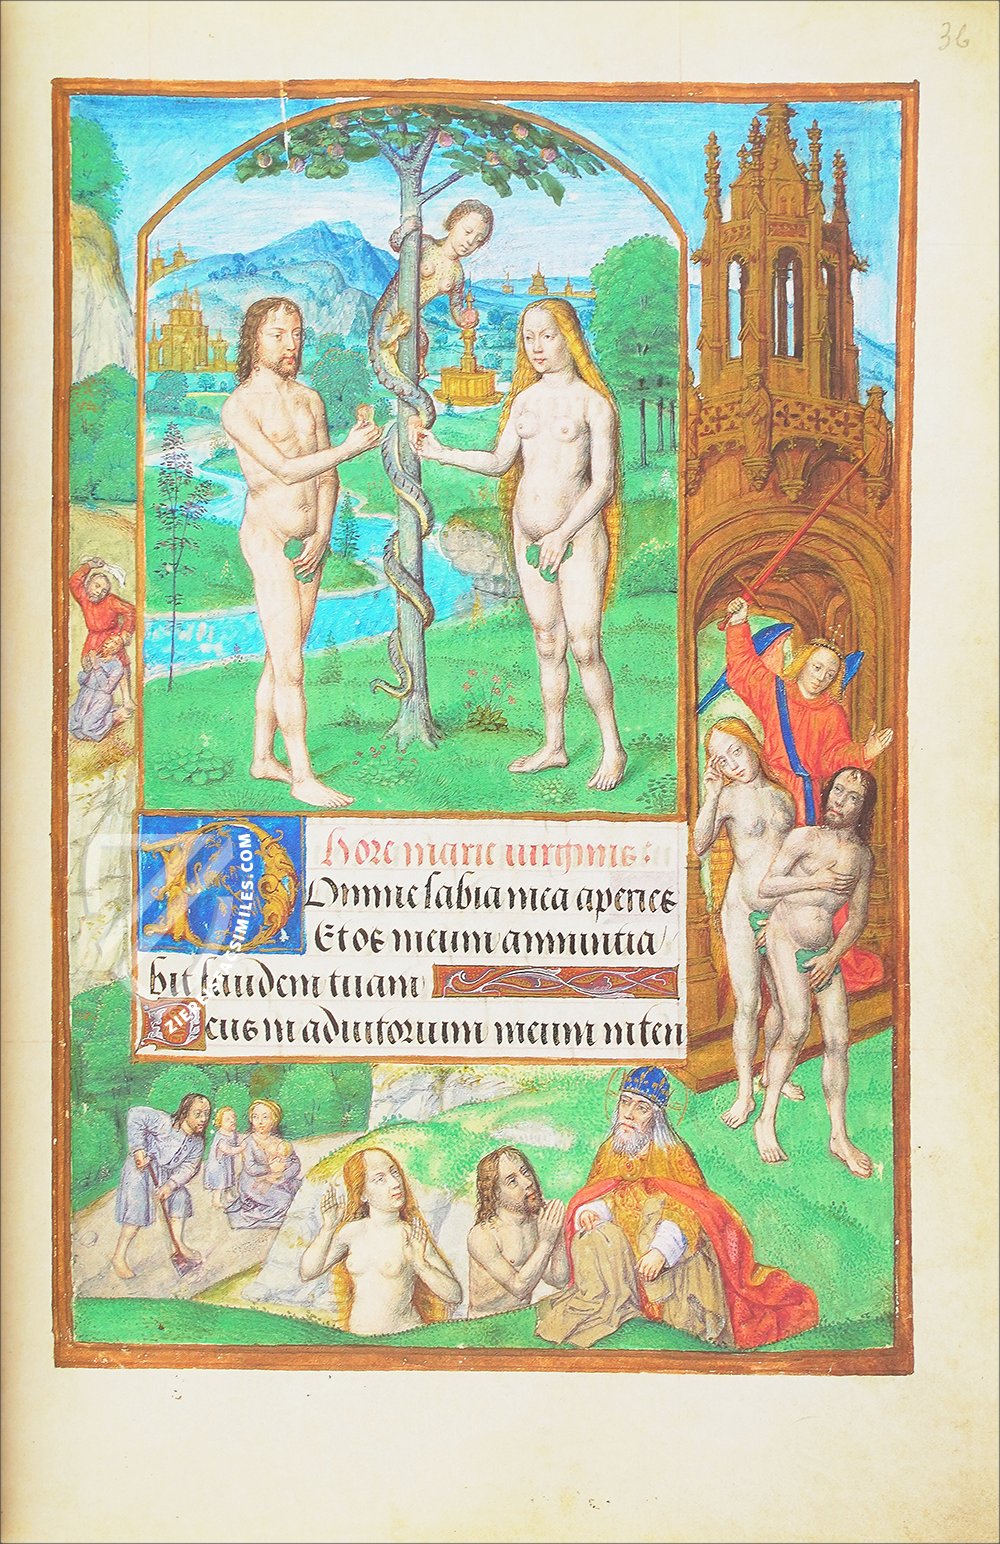 36
hore marie virginis:
Domine labia mea aperies
Et os meum annuntia
bit laudem tuam
Deus in adiutorium meum inten
ZIEREIS FACSIMILES.COM